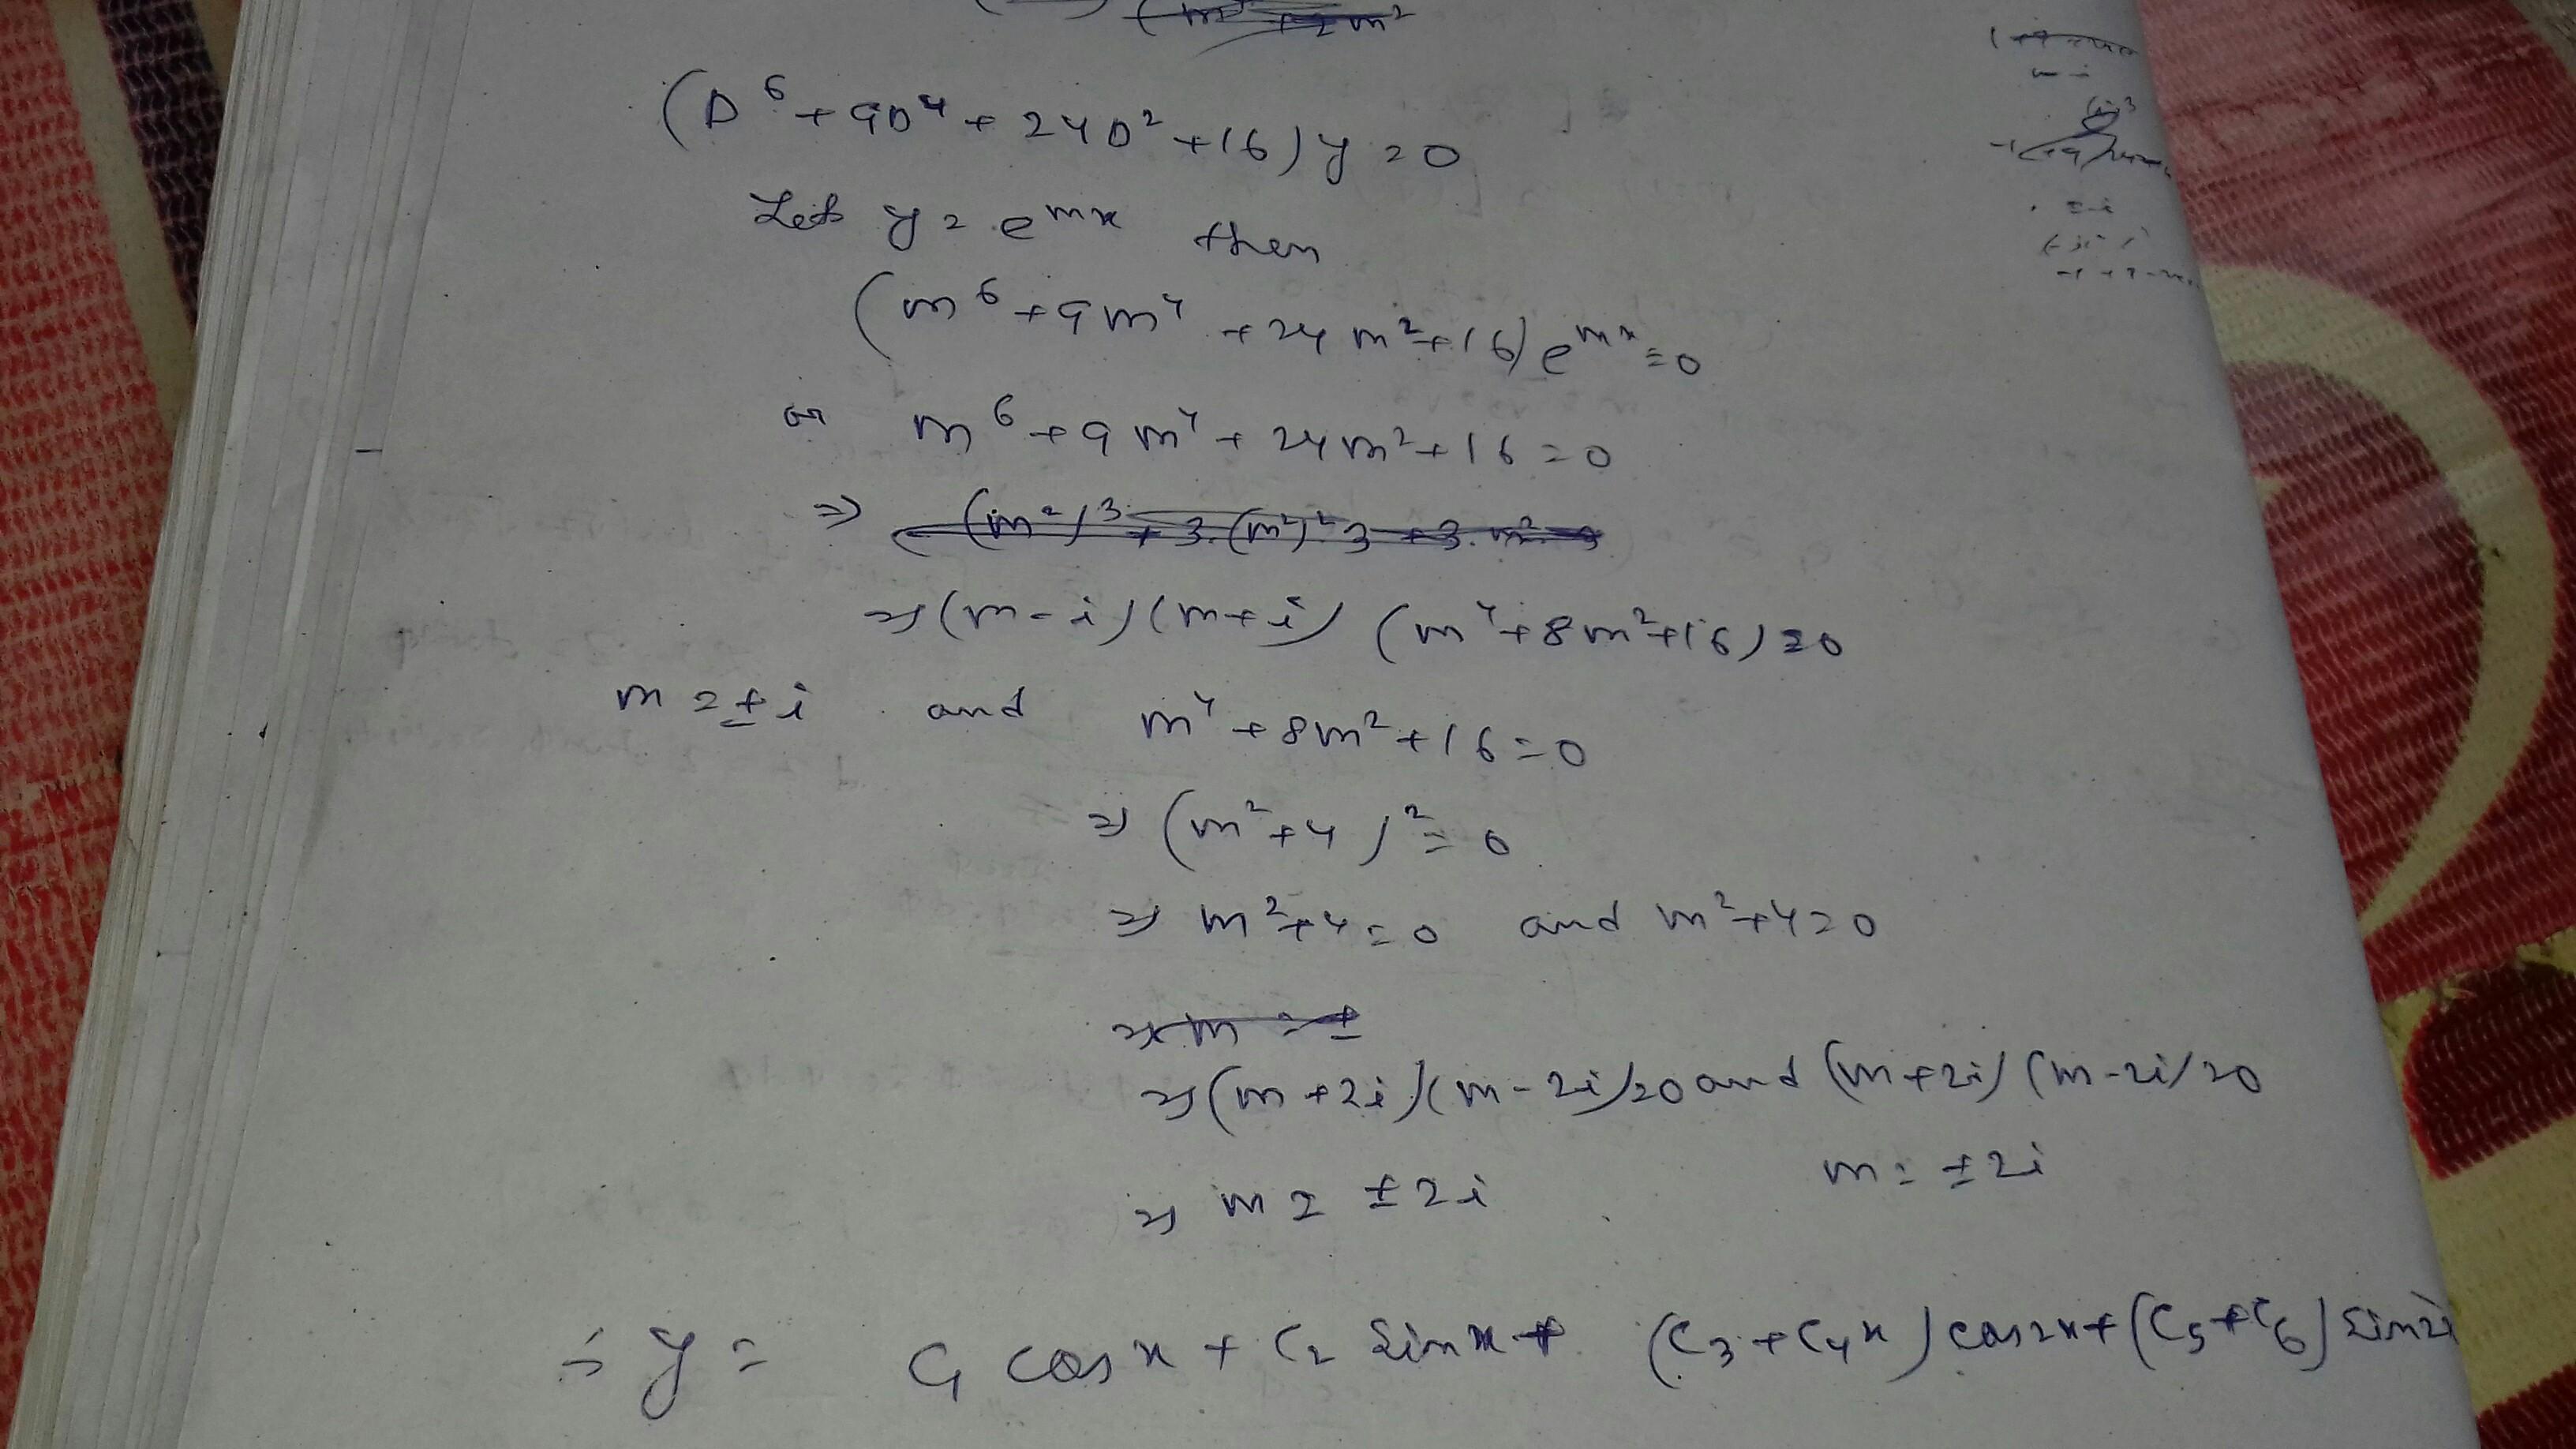 (D⁶ + 9D⁴ + 24D² + 16) y = 0
Let y = e^{mx} then
(m⁶ + 9m⁴ + 24m² + 16) e^{mx} = 0
or m⁶ + 9m⁴ + 24m² + 16 = 0
⇒ (m²)³ + 3.(m²)² 3 + 3. m².
⇒ (m - i) (m + i) (m⁴ + 8m² + 16) = 0
m = ± i and m⁴ + 8m² + 16 = 0
⇒ (m² + 4)² = 0
⇒ m² + 4 = 0 and m² + 4 = 0
⇒ m = ±
⇒ (m + 2i) (m - 2i) = 0 and (m + 2i) (m - 2i) = 0
⇒ m = ± 2i m = ± 2i
∴ y = C₁ cos x + C₂ Sin x + (C₃ + C₄x) cos 2x + (C₅ + C₆) Sin 2